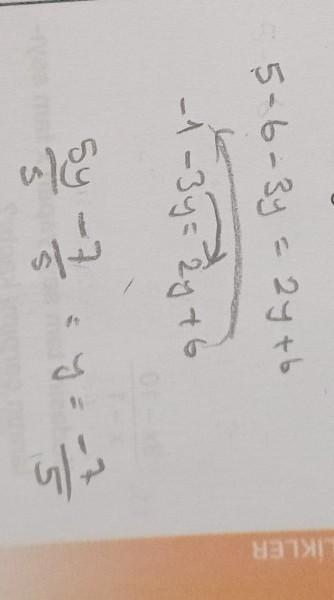 5 - 6 - 3y = 2y + 6
-1 - 3y = 2y + 6
5y/5 - 7/5 = y = -7/5
LİKLER